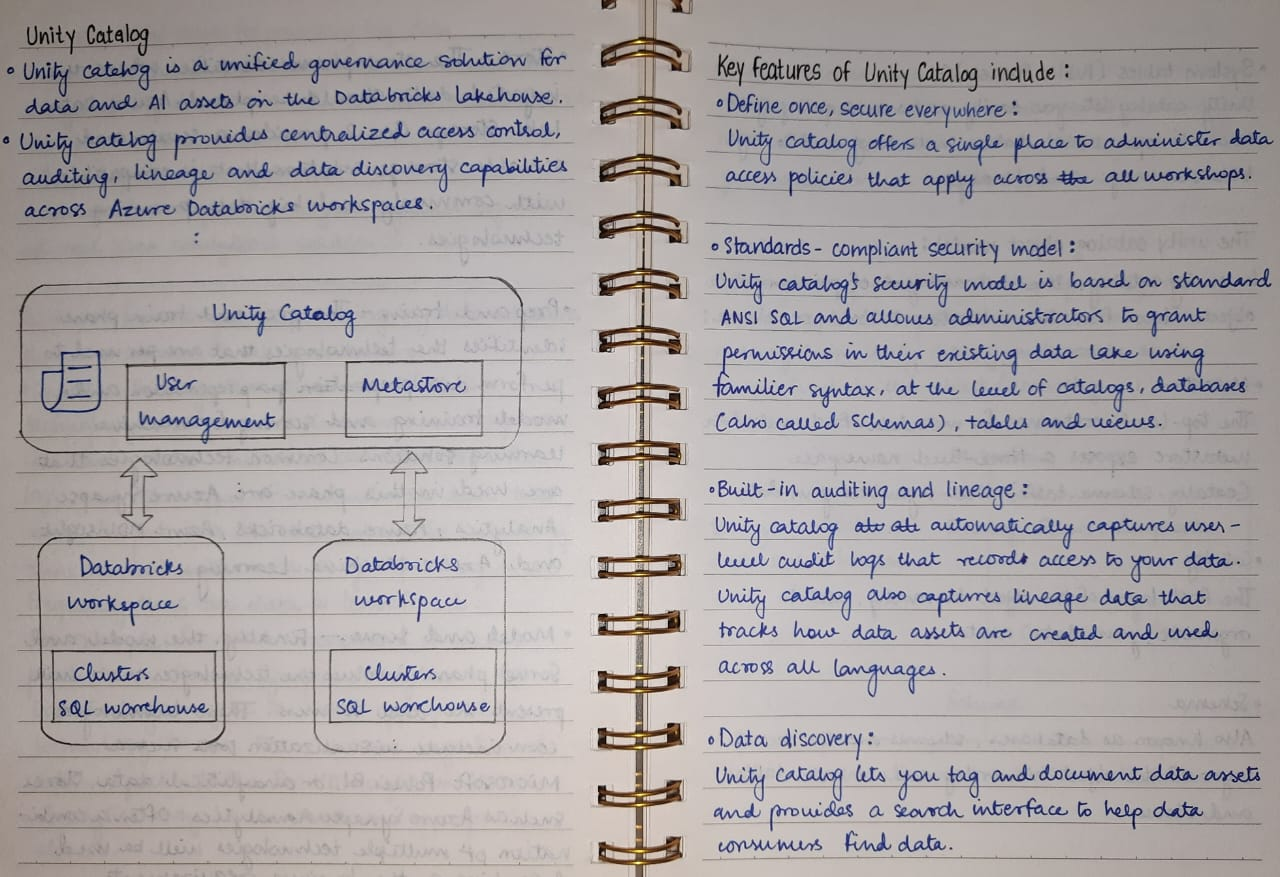 Unity Catalog
• Unity catalog is a unified governance solution for
data and AI assets on the Databricks lakehouse.
• Unity catalog provides centralized access control,
auditing, lineage and data discovery capabilities
across Azure Databricks workspaces.
Unity Catalog
User
management
Metastore
Databricks
workspace
Clusters
SQL warehouse
Databricks
workspace
Clusters
SQL warehouse
Key features of Unity Catalog include:
• Define once, secure everywhere:
Unity catalog offers a single place to administer data
access policies that apply across the all workshops.
• Standards-compliant security model:
Unity catalog's security model is based on standard
ANSI SQL and allows administrators to grant
permissions in their existing data lake using
familier syntax, at the level of catalogs, databases
(also called schemas), tables and views.
• Built-in auditing and lineage:
Unity catalog automatically captures user-
level audit logs that records access to your data.
Unity catalog also captures lineage data that
tracks how data assets are created and used
across all languages.
• Data discovery:
Unity Catalog lets you tag and document data assets
and provides a search interface to help data
consumers find data.